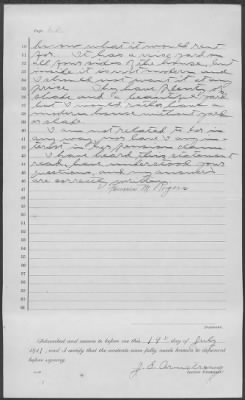 Page
know what it would rent
for. It has a nice yard on
all four sides of the house, but
inside it is not modern and
I should not want it at any
price. They have plenty of
shade and a beautiful yard
but I would rather have a
modern house without yard
or shade.
I am not related to
any way, nor have I any in-
terest in this pension claim.
I have heard this statement
read, have understood your
questions, and my answers
are correctly written.
Fannie M. Rogers
Deponent.
Subscribed and sworn to before me this 19" day of July
191 , and I certify that the contents were fully made known to deponent
before signing.
J. E. Armstrong
Special Examiner.